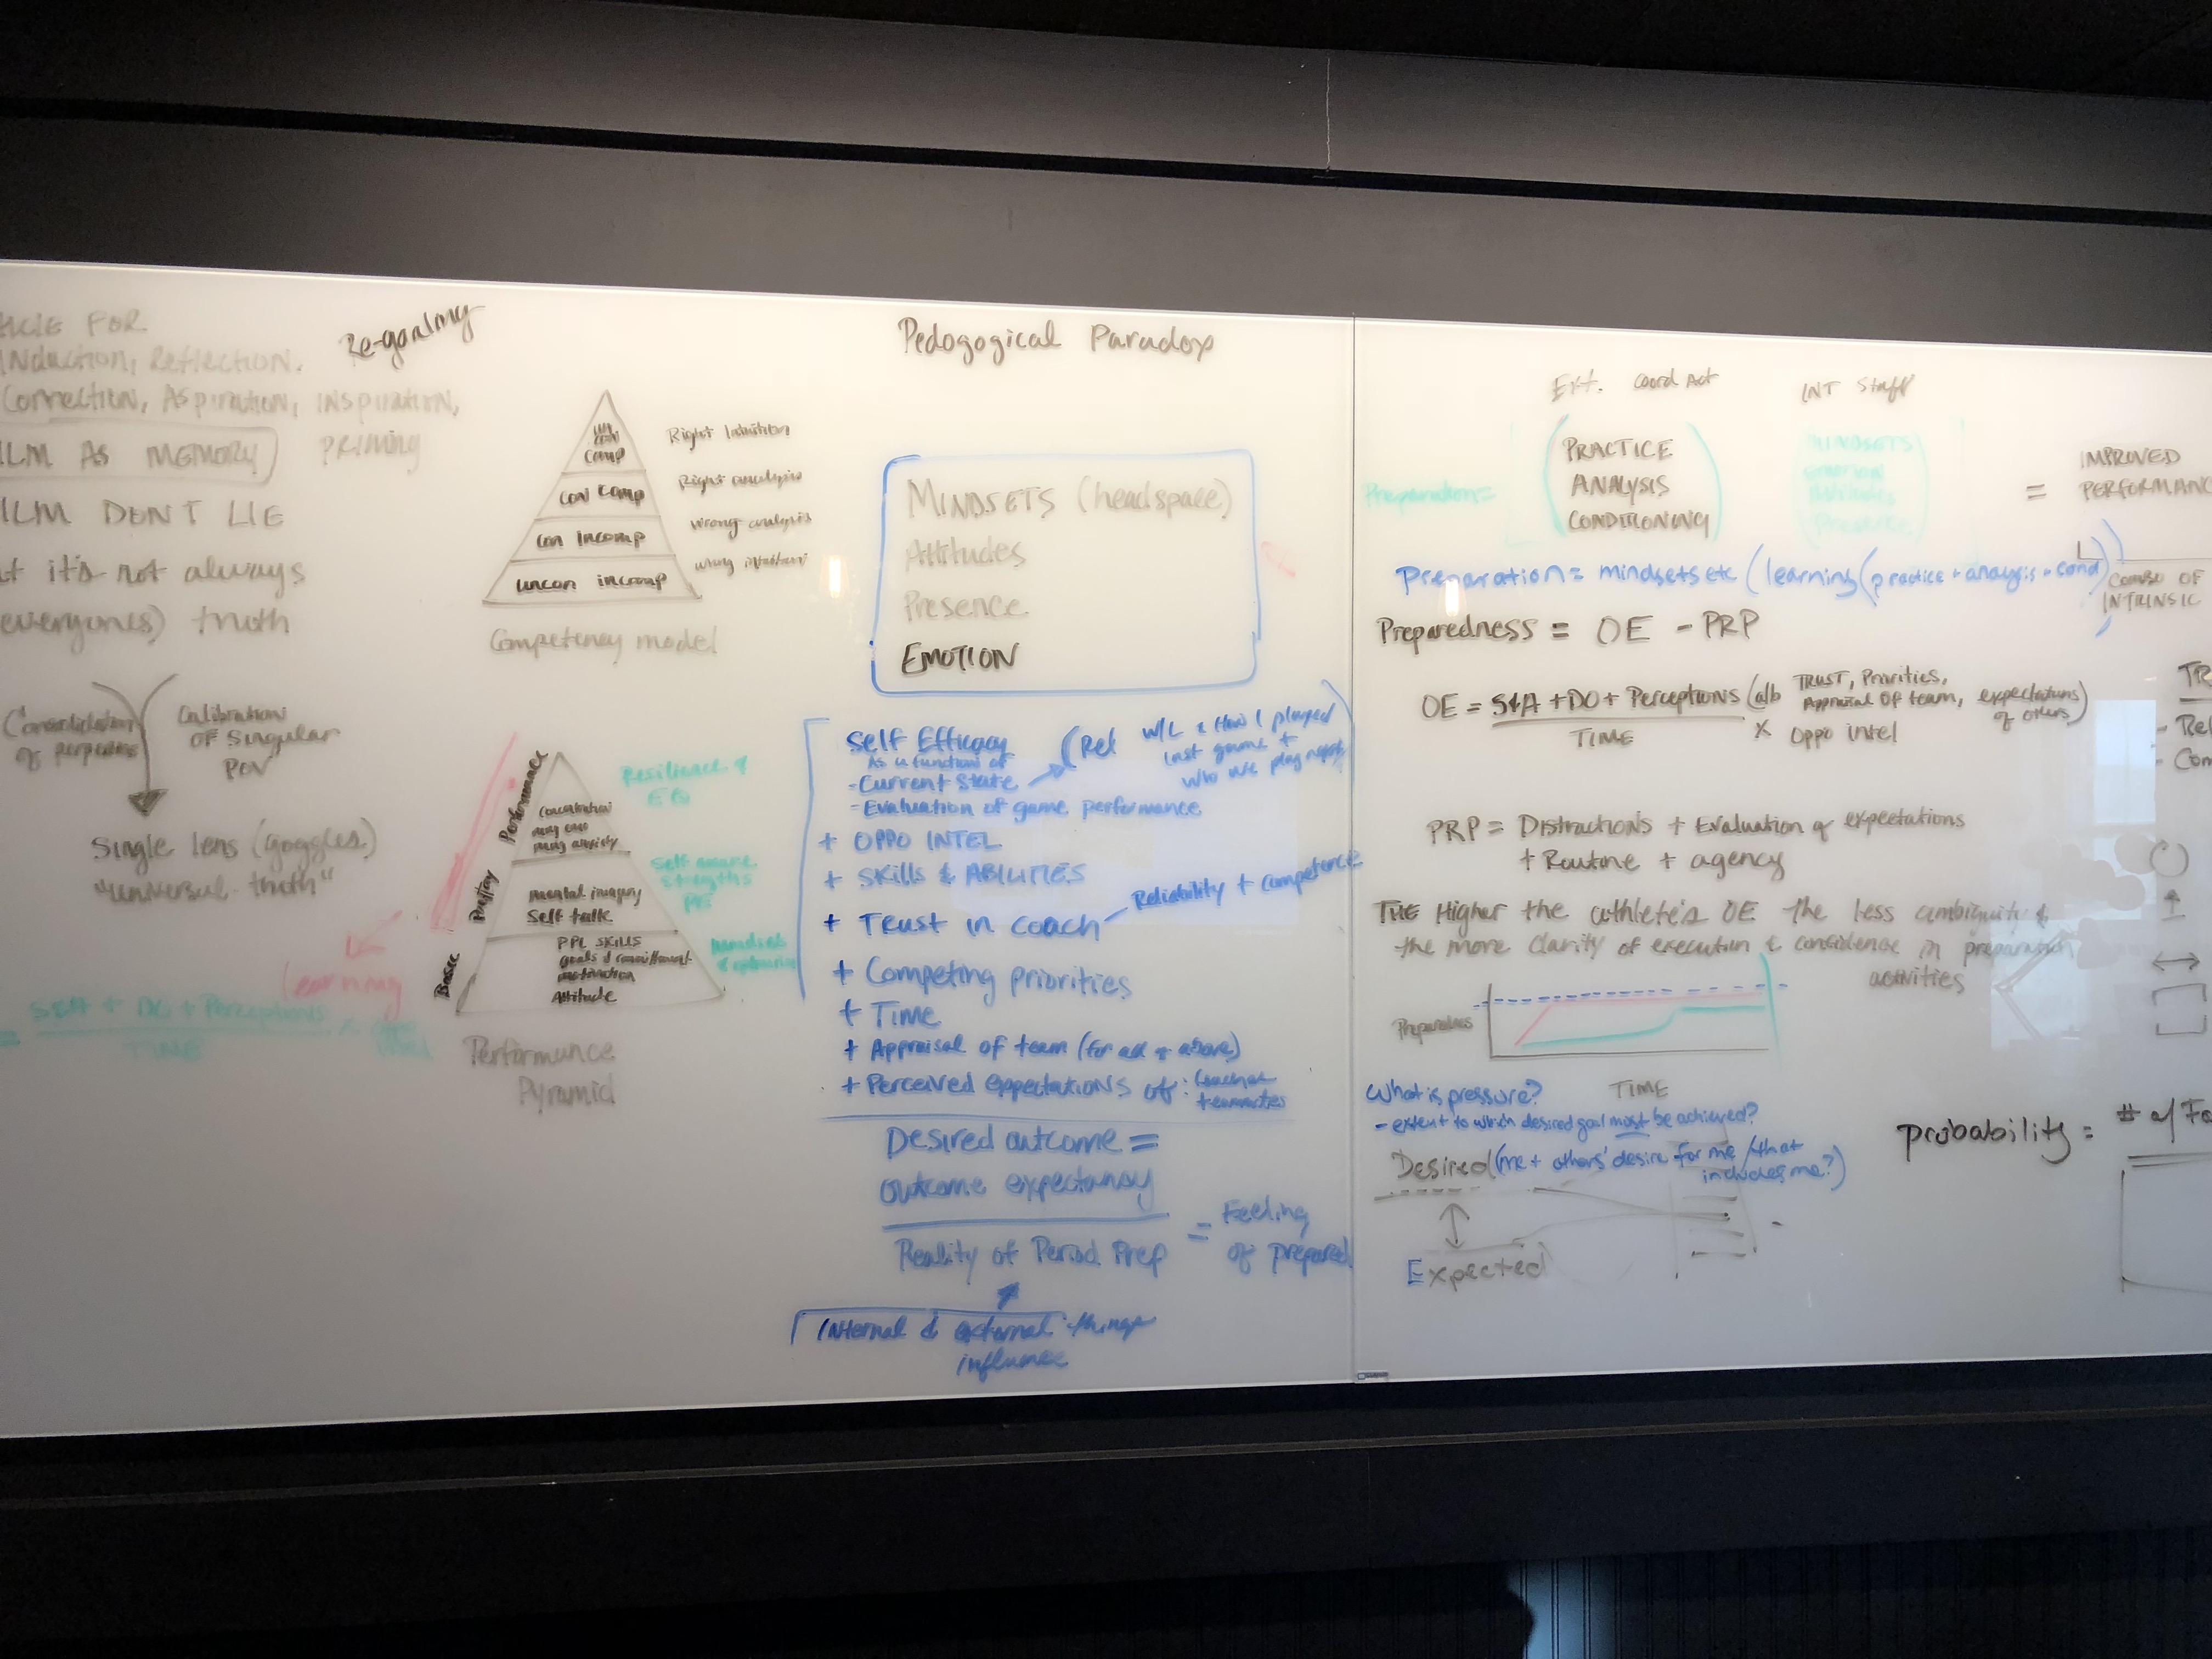 FOR
Induction, Reflection,
Connection, Aspiration, Inspiration,
Priming
AS MEMORY
DON'T LIE
it's not always
everyones) truth
Calibration
of Singular
POV
Single lens (goggles)
"universal truth"
Re-goaling
UN
CON
COMP
CON COMP
CON INCOMP
UNCON INCOMP
Right Intuition
Right analysis
Wrong analysis
wrong intuition
Competency model
Resilience &
EQ
Performance
Basic
Mental imagery
Self talk
PPL SKILLS
goals & commitment
motivation
Attitude
learning
+ Perceptions
TIME
Performance
Pyramid
Pedogogical Paradox
MINDSETS (headspace)
Attitudes
Presence
EMOTION
Self Efficacy
As a function of
- Current State
(Rel W/L & How I played
last game +
who we play next)
- Evaluation of game performance
+ OPPO INTEL
+ SKILLS & ABILITIES
+ Trust in coach
Reliability + competence
+ Competing priorities
+ Time
+ Appraisal of team (for all of above)
+ Perceived expectations of: Coaches
teammates
Desired outcome =
outcome expectancy
Reality of Period Prep
= Feeling
of prepared
Internal & external things
influence
Ext. Coord Act
INT Staff
Preparation =
PRACTICE
ANALYSIS
CONDITIONING
MINDSETS
Emotion
Attitudes
Presence
=
IMPROVED
Preparation = mindsets etc (learning (practice + analysis + cond))
COMBO OF
INTRINSIC
Preparedness = OE - PRP
OE = S&A + DO + Perceptions (a/b TRUST, Priorities,
Appraisal of team, expectations
of others)
TIME
x Oppo intel
PRP = Distractions + Evaluation of expectations
+ Routine + agency
THE Higher the athlete's OE the less ambiguity &
the more clarity of execution & confidence in preparation
activities
Preparedness
TIME
What is pressure?
- extent to which desired goal must be achieved?
Desired (me + others' desire for me / that
includes me?)
Expected
probability = # of